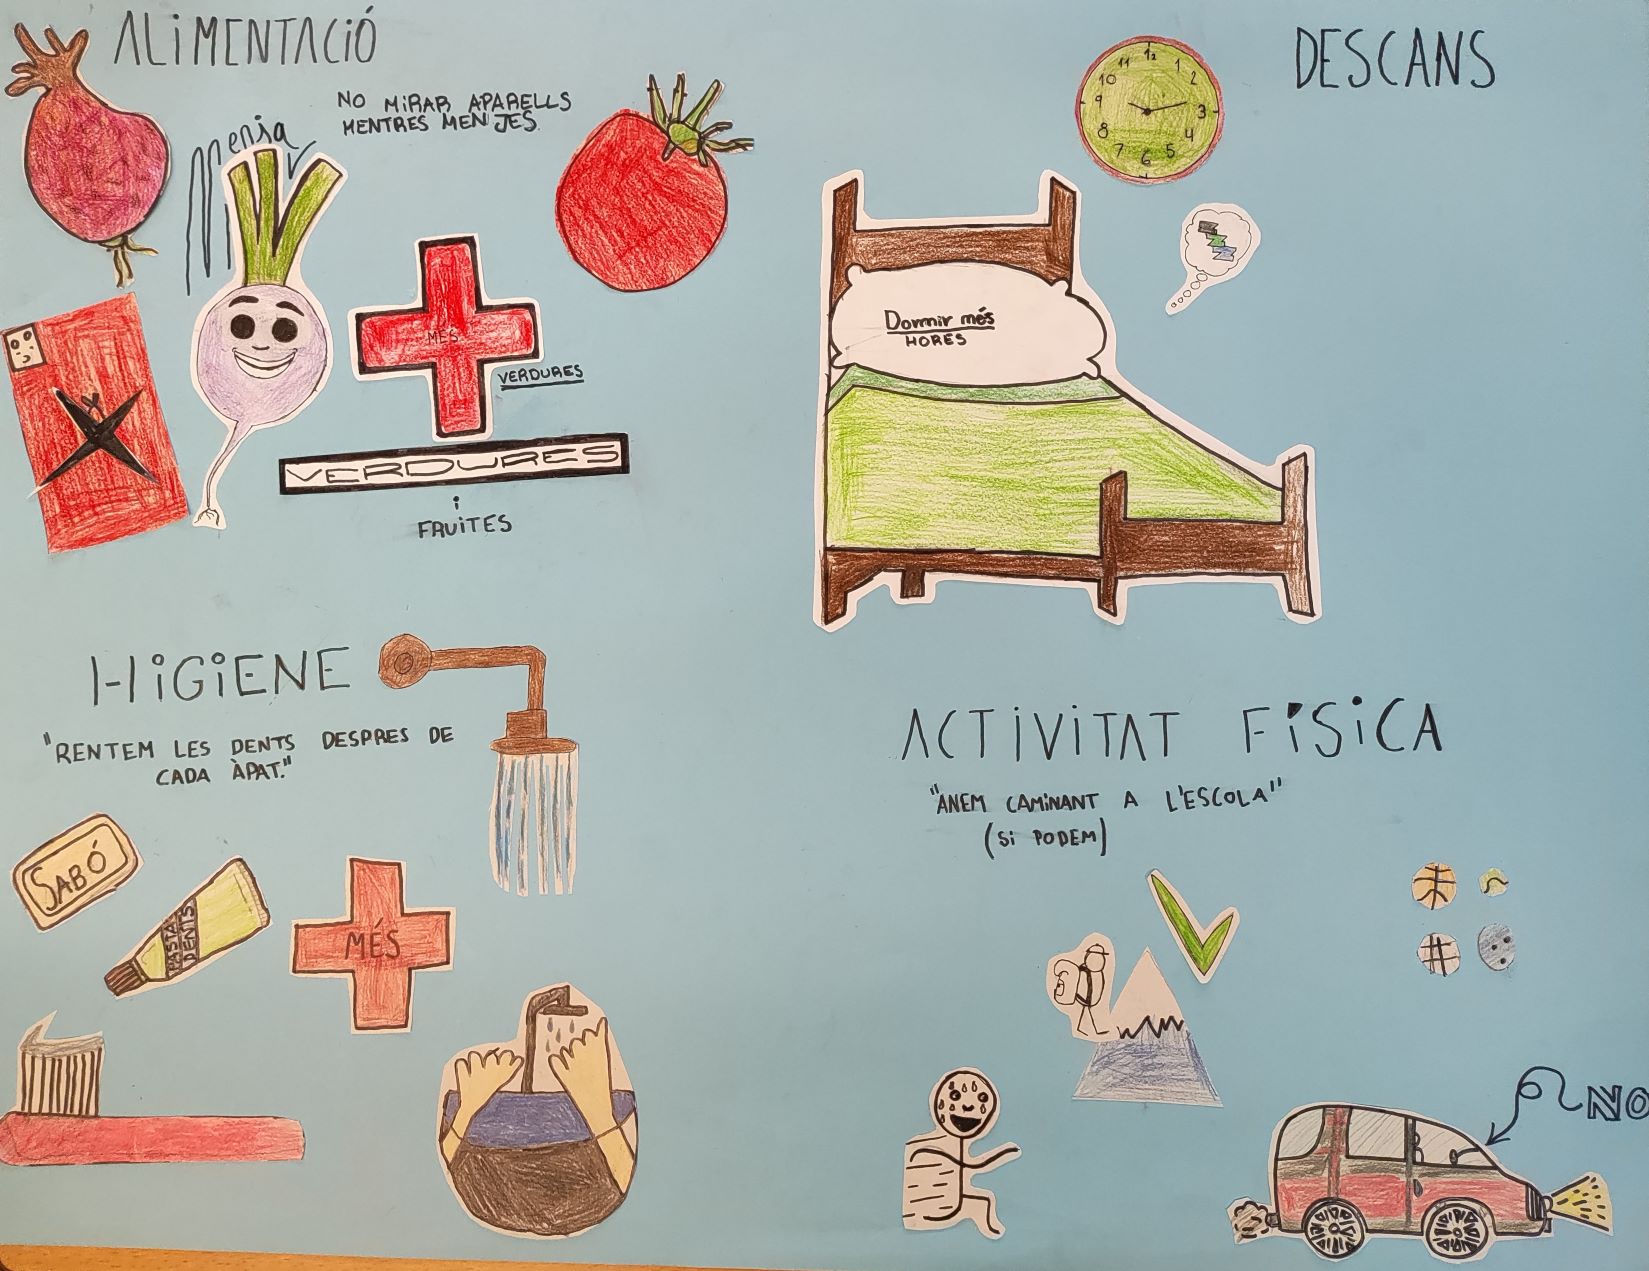 ALiMENTACIÓ
NO MiRAR APARELLS
MENTRES MENJES.
Menja
MÉS
VERDURES
VERDURES
i
FRUiTES
DESCANS
12
11 1
10 2
9 3
8 4
7 5
6
Dormir més
HORES
HiGiENE
"RENTEM LES DENTS DESPRES DE
CADA ÀPAT."
SABÓ
PASTA
DENTS
MÉS
ACTiViTAT FÍSiCA
"ANEM CAMiNANT A L'ESCOLA"
(Si PODEM)
NO